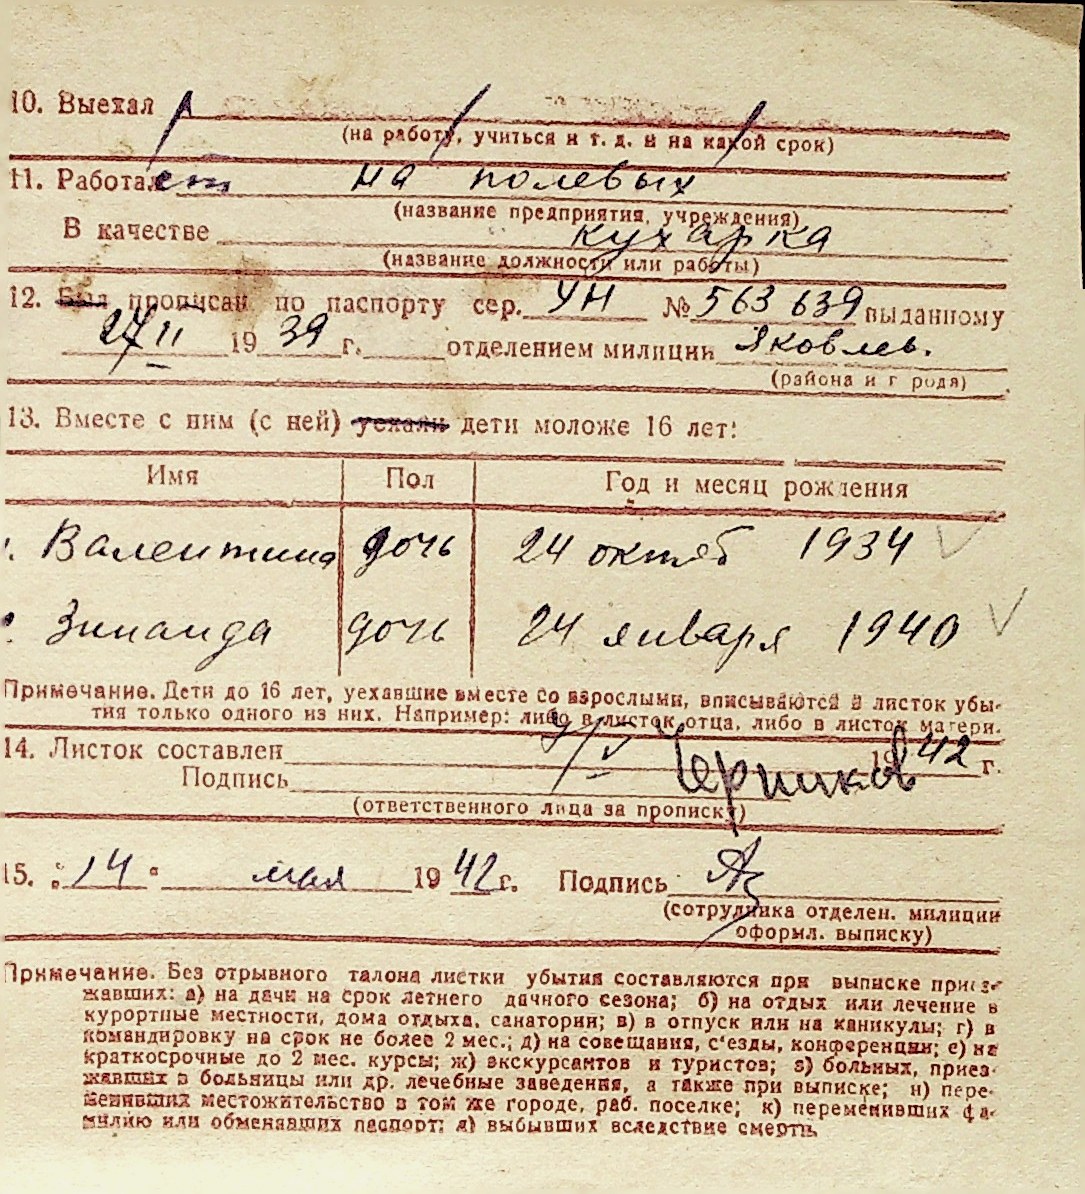 10. Выехал
(на работу, учиться и т. д. и на какой срок)
11. Работает на полевых
(название предприятия, учреждения)
В качестве кухарка
(название должности или работы)
12. Был прописан по паспорту сер. УН № 563 639 выданному
27 II 1939 г. отделением милиции Яковлев.
(района и г рода)
13. Вместе с ним (с ней) уехали дети моложе 16 лет:
Имя Пол Год и месяц рождения
Валентина дочь 24 октяб 1934
Зинаида дочь 24 января 1940
Примечание. Дети до 16 лет, уехавшие вместе со взрослыми, вписываются в листок убы-
тия только одного из них. Например: либо в листок отца, либо в листок матери.
14. Листок составлен 9/V 1942 г.
Подпись Черников
(ответственного лица за прописку)
15. "14" мая 1942 г. Подпись
(сотрудника отделен. милиции
оформл. выписку)
Примечание. Без отрывного талона листки убытия составляются при выписке приез-
жавших: а) на дачи на срок летнего дачного сезона; б) на отдых или лечение в
курортные местности, дома отдыха, санатории; в) в отпуск или на каникулы; г) в
командировку на срок не более 2 мес.; д) на совещания, с'езды, конференции; е) на
краткосрочные до 2 мес. курсы; ж) экскурсантов и туристов; з) больных, приез-
жавших в больницы или др. лечебные заведения, а также при выписке; и) пере-
менивших местожительство в том же городе, раб. поселке; к) переменивших фа-
милию или обменявших паспорт; л) выбывших вследствие смерти.